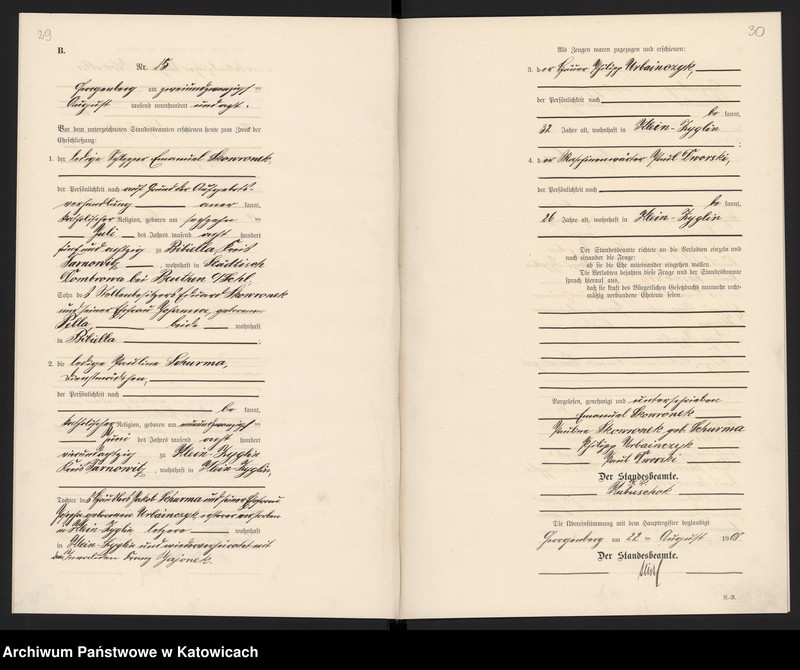 29
B.
Nr. 15
Georgenberg am zweiundzwanzigsten
August tausend neunhundert und acht.
Vor dem unterzeichneten Standesbeamten erschienen heute zum Zweck der
Eheschließung:
1. der ledige Schlepper Emanuel Skowronek,
der Persönlichkeit nach auf Grund der Aufgebots-
verhandlung aner kannt,
katholischer Religion, geboren am
Juli des Jahres tausend acht hundert
fünf und achtzig zu Bibiella, Kreis
Tarnowitz, wohnhaft in Städtisch
Dombrowa bei Beuthen O/Schl.
Sohn des Stellenbesitzers Eduard Skowronek
und seiner Ehefrau Johanna, geborenen
Pella beide wohnhaft
in Bibiella;
2. die ledige Pauline Schurma,
Dienstmädchen,
der Persönlichkeit nach
be kannt,
katholischer Religion, geboren am neunundzwanzigsten
Juni des Jahres tausend acht hundert
vierundachtzig zu Klein-Zyglin
Kreis Tarnowitz, wohnhaft in Klein-Zyglin,
Tochter des Häuslers Jakob Schurma und seiner Ehefrau
Josepha geborenen Urbainczyk, ersterer verstorben
in Klein-Zyglin letztere wohnhaft
in Klein-Zyglin und wiederverheiratet mit
dem Invaliden Franz Gajonek.
30
Als Zeugen waren zugezogen und erschienen:
3. der Häuer Philipp Urbainczyk,
der Persönlichkeit nach
be kannt,
32 Jahre alt, wohnhaft in Klein-Zyglin
;
4. der Maschinenwärter Paul Dworski,
der Persönlichkeit nach
be kannt,
26 Jahre alt, wohnhaft in Klein-Zyglin
Der Standesbeamte richtete an die Verlobten einzeln und
nach einander die Frage:
ob sie die Ehe miteinander eingehen wollen.
Die Verlobten bejahten diese Frage und der Standesbeamte
sprach hierauf aus,
daß sie kraft des Bürgerlichen Gesetzbuchs nunmehr recht-
mäßig verbundene Eheleute seien.
Vorgelesen, genehmigt und unterschrieben
Emanuel Skowronek
Pauline Skowronek geb. Schurma
Philipp Urbainczyk
Paul Dworski
Der Standesbeamte.
Kubuschok
Die Übereinstimmung mit dem Hauptregister beglaubigt
Georgenberg am 22ten August 1908
Der Standesbeamte.
N.-B.
Archiwum Państwowe w Katowicach